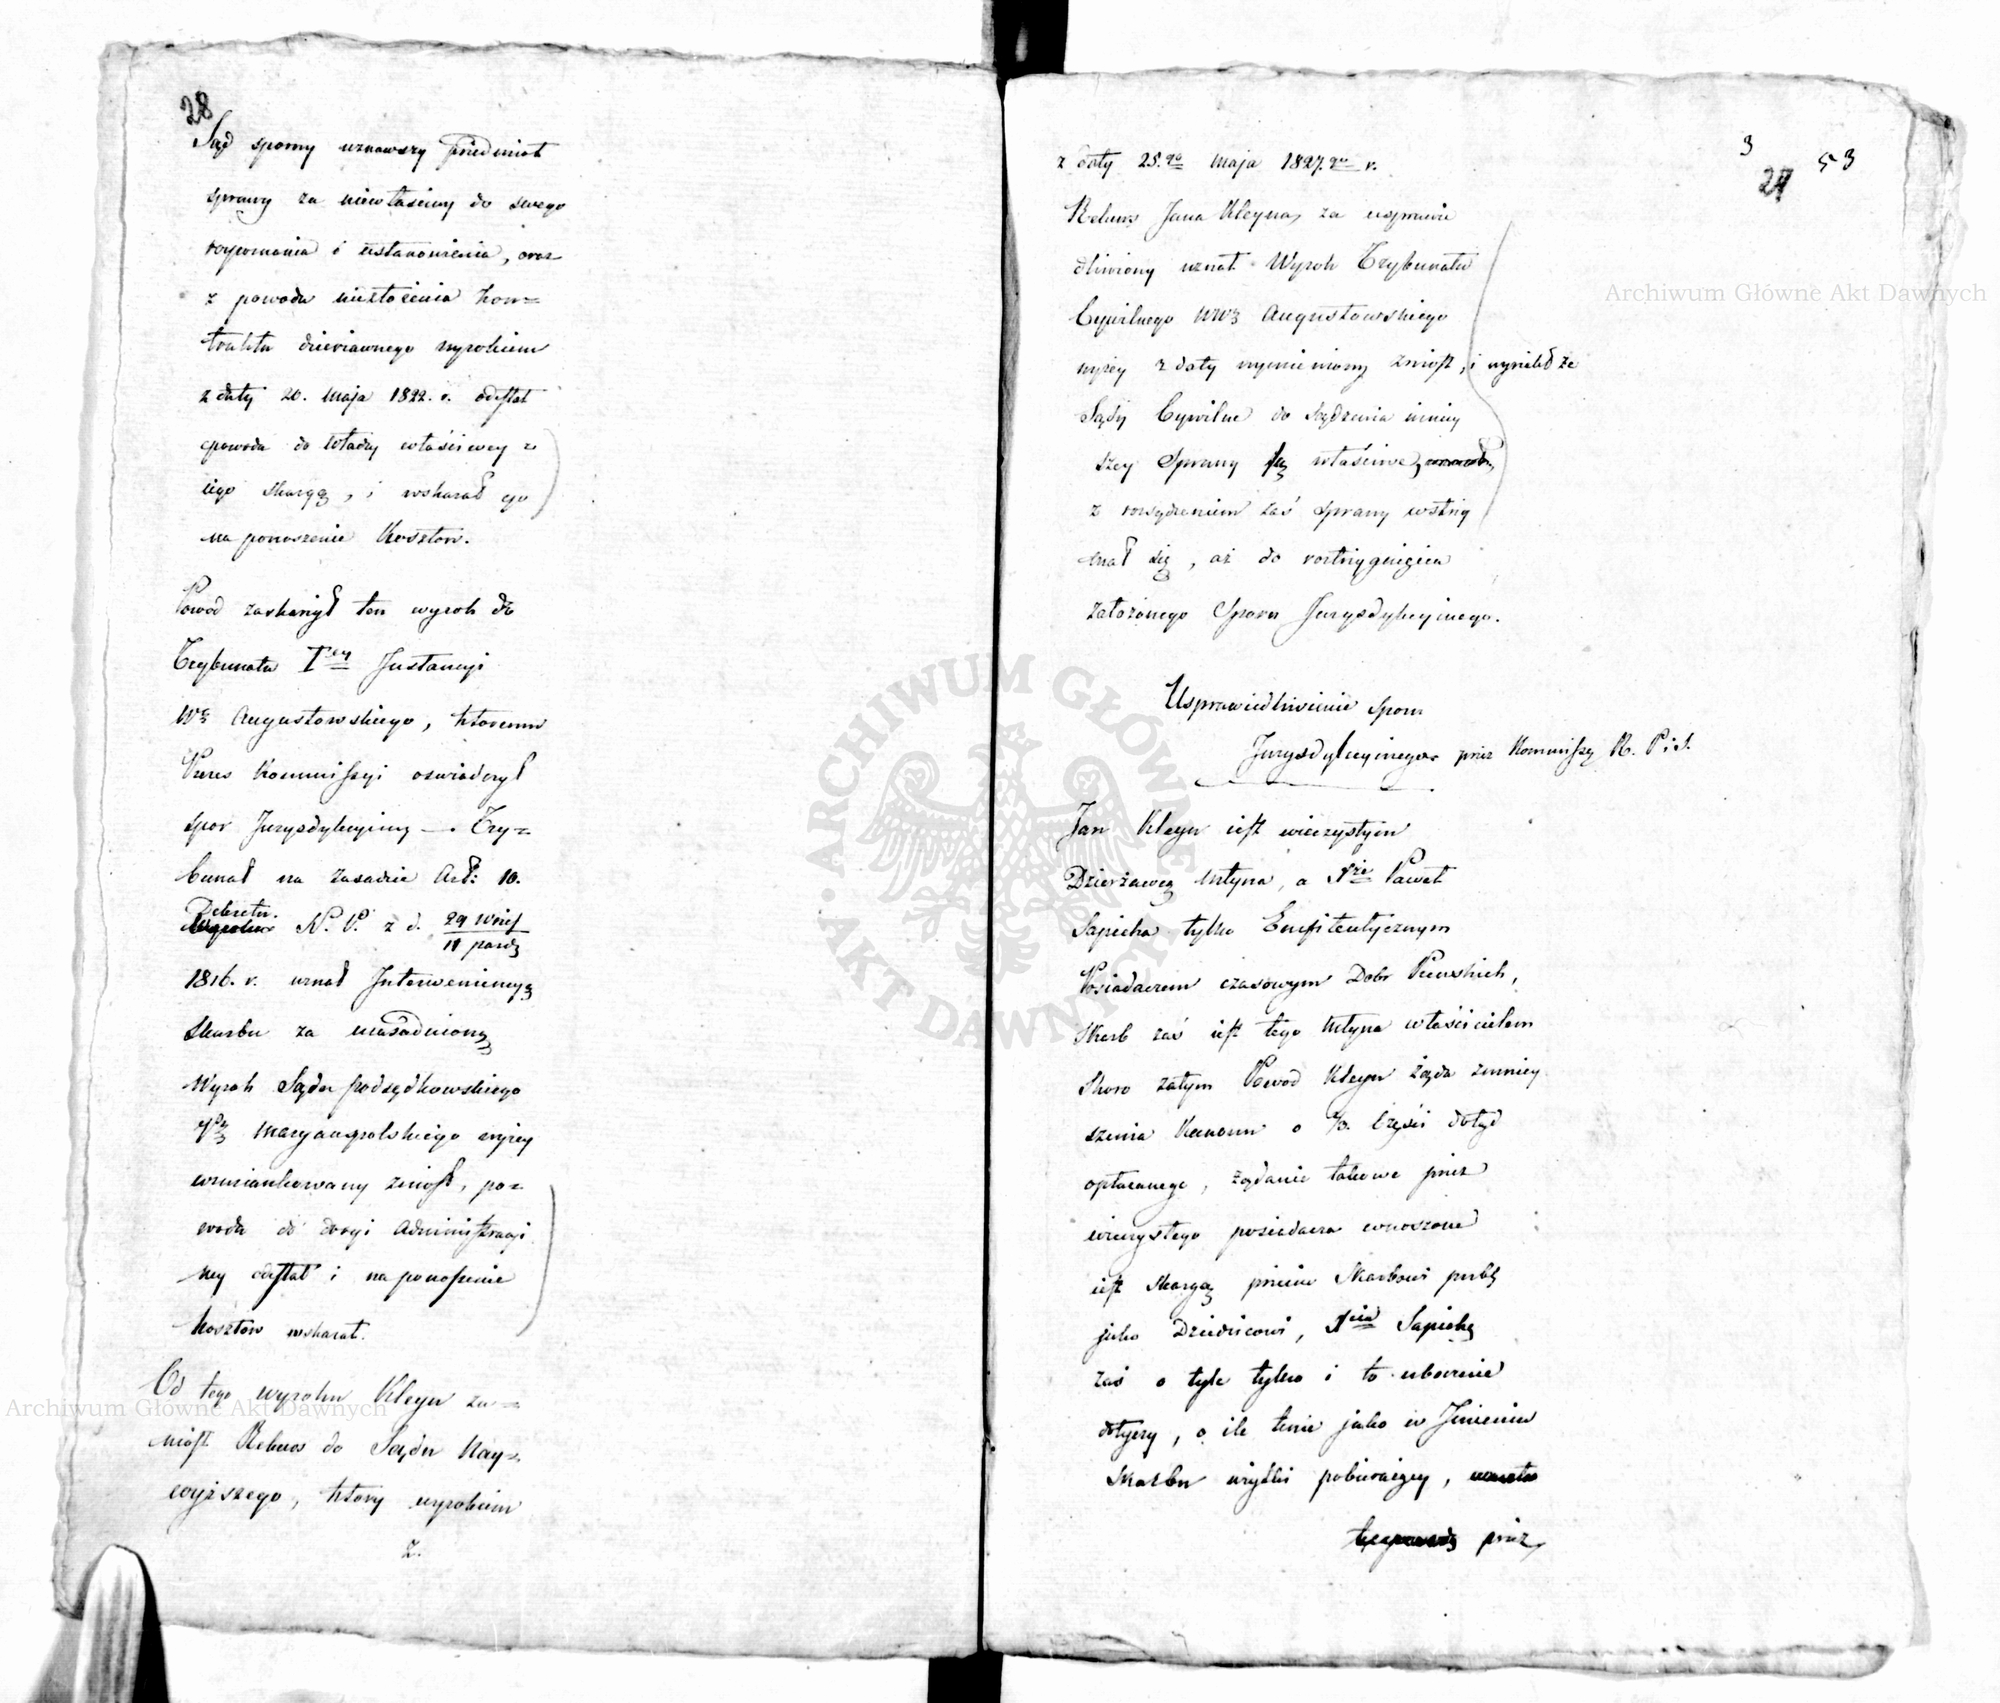 28
Sąd sporny uznawszy przedmiot
sprawy za niewłaściwy do swego
rozpoznania i ustanowienia, oraz
z powodu niezłożenia kon=
traktu dzierżawnego wyrokiem
z daty 20. maja 1822. r. odesłał
powoda do władzy właściwey z
iego skargą, i wskazał go
na ponoszenie Kosztow.
Powod zaskarżył ten wyrok do
Trybunału I ey Instancyi
Wa Augustowskiego, ktoremu
Prezes Kommissyi oswiadczył
spor Jurysdykcyiny —. Try=
bunał na zasadzie Art: 10.
Dekretu
N. P. z d. 29 Wrześ
11 pazdz
1816. r. uznał Interweniencyą
Skarbu za uzasadnioną
Wyrok Sądu podsędkowskiego
Ptu Maryampolskiego wyżey
wzmiankowany zniosł, po=
woda do drogi Administracyi
ney odesłał i na ponoszenie
kosztów wskazał.
Od tego wyroku Kleyn za=
niosł Rekurs do Sądu Nay=
wyższego, ktory wyrokiem
z.
3
27 53
z daty 25.go maja 1827.go r.
Rekurs Jana Kleyna, za usprawie
dliwiony uznał Wyrok Trybunału
Cywilnego Wwa Augustowskiego
wyżey z daty wymieniony zniosł, i wyrzekł że
Sądy Cywilne do sądzenia niniey
szey sprawy są właściwe,
z rozsądzeniem zaś sprawy wstrzy
mał się, aż do rozstrzygnięcia
założonego Sporu Jurysdykcyinego.
Usprawiedliwienie sporu
Jurysdykcyinego przez Kommissyą R. P i S.
Jan Kleyn iest wieczystym
Dzierżawcą Młyna, a Xże Paweł
Sapieha tylko Emfiteutycznym
Posiadaczem czasowym Dobr Pienskich,
Skarb zaś iest tego Młyna właścicielem
Skoro zatym Powod Kleyn żąda zmniey
szenia Kanonu o 2/3. części dotąd
opłacanego, żądanie takowe przez
wieczystego posiadacza wnoszone
iest skargą przeciw Skarbowi publ
jako Dziedzicowi, Xcia Sapiehę
zaś o tyle tylko i to ubocznie
dotyczy, o ile tenże jako w Imieniu
Skarbu użytki pobieraiący,
przez